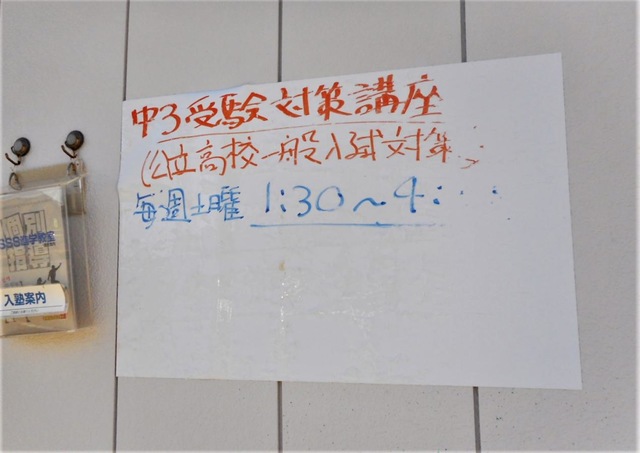 中3受験対策講座
(公立高校一般入試対策
毎週土曜 1:30~4:
個別
指導
SSS進学教室
入塾案内